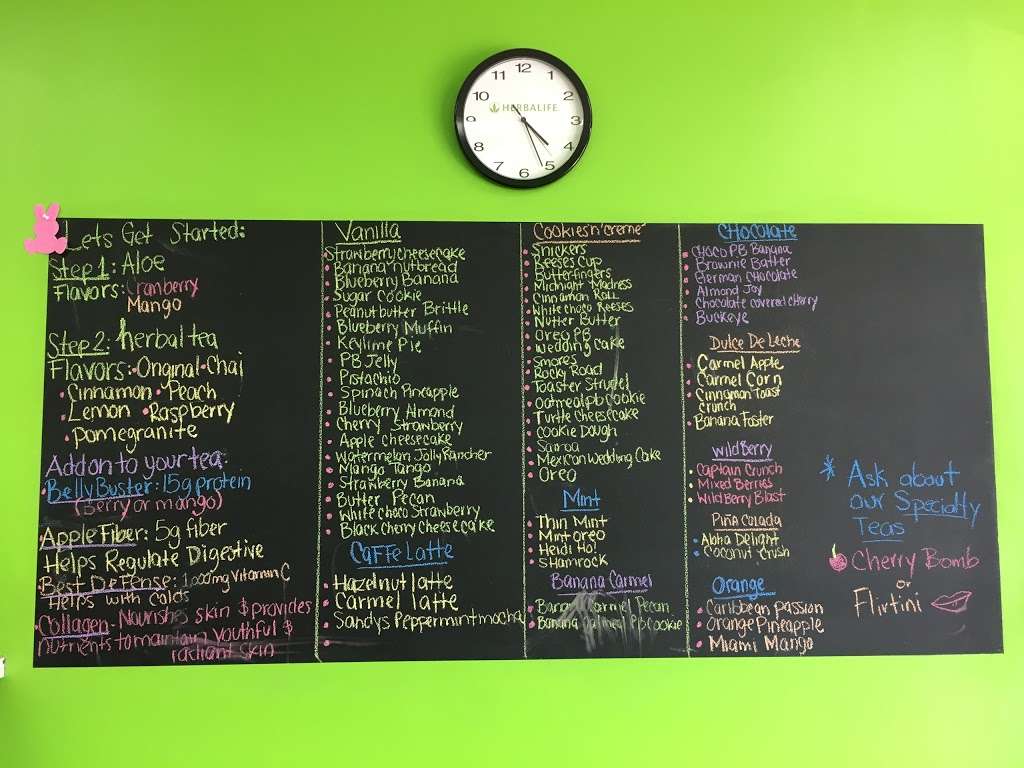 12
11
1
10
2
HERBALIFE
9
3
8
4
7
5
6
Lets Get Started:
Step 1: Aloe
Flavors: Cranberry
Mango
Step 2: herbal tea
Flavors: Original Chai
Cinnamon Peach
Lemon Raspberry
pomegranite
Add on to your tea:
Belly Buster: 15g protein
(Berry or mango)
Apple Fiber: 5g fiber
Helps Regulate Digestive
Best Defense: 1,000mg Vitamin C
Helps with colds
Collagen- Nourishes skin $ provides
nutrients to maintain youthful $
radiant skin
Vanilla
Strawberry cheesecake
Banana nutbread
Blueberry Banana
Sugar Cookie
Peanut butter Brittle
Blueberry Muffin
Keylime Pie
PB Jelly
Pistachio
Spinach Pineapple
Blueberry Almond
Cherry Strawberry
Apple cheesecake
Watermelon Jolly Rancher
Mango Tango
Strawberry Banana
Butter Pecan
White choco Strawberry
Black Cherry Cheesecake
Caffe Latte
Hazelnut latte
Carmel latte
Sandys Peppermint mocha
Cookies n' creme
Snickers
Reeses Cup
Butterfingers
Midnight Madness
Cinnamon Roll
White choco Reeses
Nutter Butter
Oreo PB
Wedding Cake
Smores
Rocky Road
Toaster Strudel
Oatmeal pb Cookie
Turtle Cheesecake
Cookie Dough
Samoa
Mexican Wedding Cake
Oreo
Mint
Thin Mint
Mint oreo
Heidi Ho!
Shamrock
Banana Carmel
Banana Carmel Pecan
Banana Oatmeal PB Cookie
CHocolate
Choco PB Banana
Brownie Batter
German Chocolate
Almond Joy
Chocolate covered cherry
Buckeye
Dulce De Leche
Carmel Apple
Carmel Corn
Cinnamon Toast
Crunch
Banana Foster
Wild Berry
Captain Crunch
Mixed Berries
Wild Berry Blast
Piña Colada
Aloha Delight
Coconut Crush
Orange
Caribbean Passion
Orange Pineapple
Miami Mango
* Ask about
our Specialty
Teas
Cherry Bomb
or
Flirtini